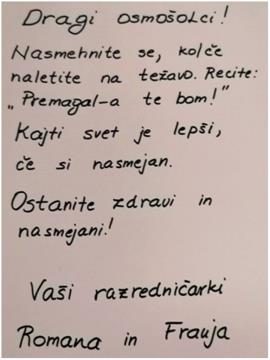 Dragi osmošolci!
Nasmehnite se, ko/če
naletite na težavo. Recite:
„Premagal-a te bom!”
Kajti svet je lepši,
če si nasmejan.
Ostanite zdravi in
nasmejani!
Vaši razredničarki
Romana in Franja